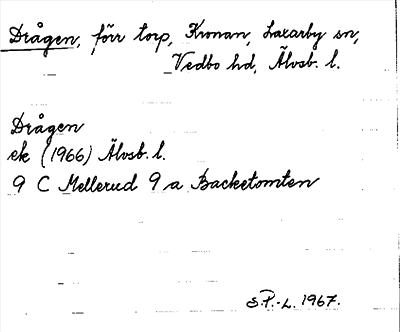 Drågen, förr torp, Kronan, Laxarby sn,
Vedbo hd, Älvsb. l.
Drågen
ek (1966) Älvsb. l.
9 C Mellerud 9 a Backetomten
S.P.-L. 1967.